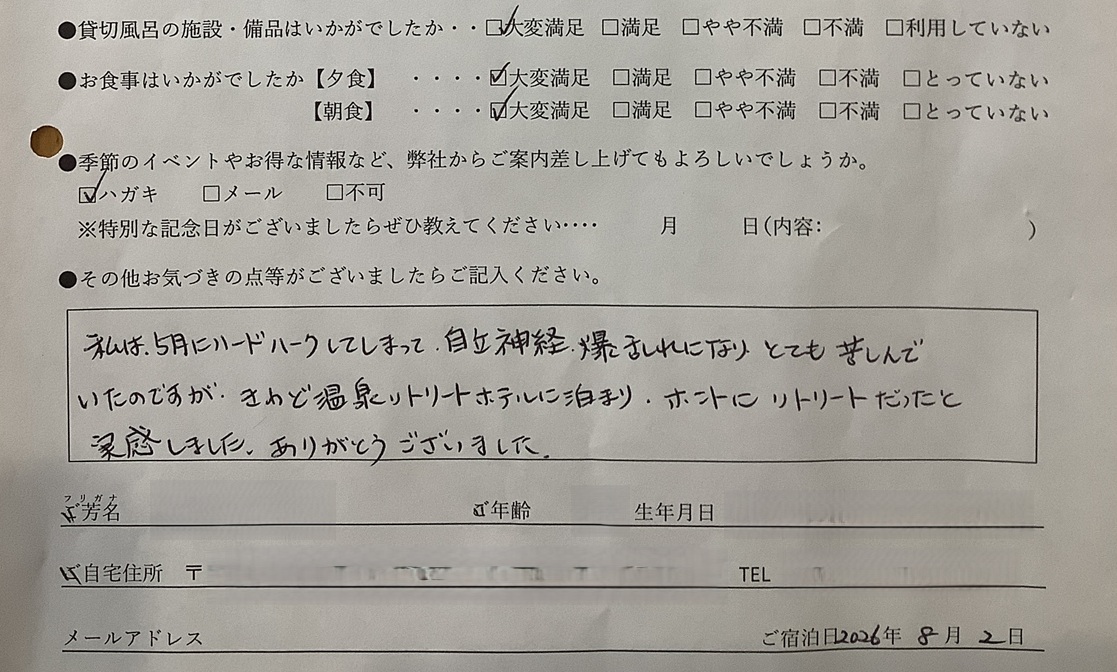 ●貸切風呂の施設・備品はいかがでしたか・・☑大変満足 □満足 □やや不満 □不満 □利用していない
●お食事はいかがでしたか【夕食】 ・・・・☑大変満足 □満足 □やや不満 □不満 □とっていない
【朝食】 ・・・・☑大変満足 □満足 □やや不満 □不満 □とっていない
●季節のイベントやお得な情報など、弊社からご案内差し上げてもよろしいでしょうか。
☑ハガキ □メール □不可
※特別な記念日がございましたらぜひ教えてください‥‥ 月 日(内容: )
●その他お気づきの点等がございましたらご記入ください。
私は、5月にハードハークしてしまって、自立神経、爆あれになり とても 苦しんで
いたのですが、きわど温泉リトリートホテルに泊まり、ホントに リトリートだったと
実感しました。ありがとうございました。
フリガナ
ご芳名 ご年齢 生年月日
ご自宅住所 〒 TEL
メールアドレス ご宿泊日2026年 8月 2日